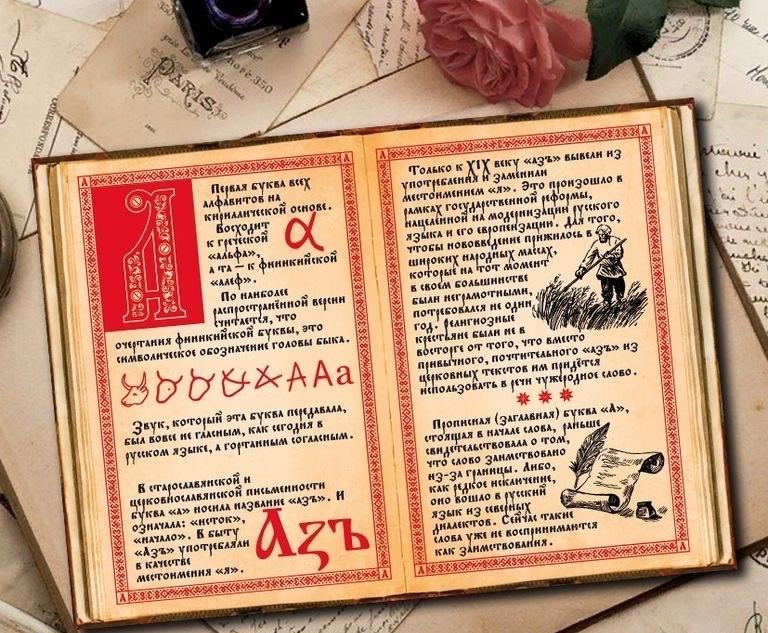 PARIS
А
Первая буква всех
алфавитов на
кириллической основе.
Восходит
к греческой
«альфа»,
а та – к финикийской
«алеф».
α
По наиболее
распространённой версии
считается, что
очертания финикийской буквы, это
символическое обозначение головы быка.
А А а
Звук, который эта буква передавала,
был вовсе не гласным, как сегодня в
русском языке, а гортанным согласным.
В старославянской и
церковнославянской письменности
буква «а» носила название «азъ». И
означала: «исток»,
«начало». В быту
«Азъ» употребляли
в качестве
местоимения «я».
Азъ
Только к XIX веку «азъ» вывели из
употребления и заменили
местоимением «я». Это произошло в
рамках государственной реформы,
нацеленной на модернизации русского
языка и его европеизации. Для того,
чтобы нововведение прижилось в
широких народных массах,
которые на тот момент
в своём большинстве
были неграмотными,
потребовался не один
год. Религиозные
крестьяне были не в
восторге от того, что вместо
привычного, почтительного «азъ» из
церковных текстов им придётся
использовать в речи чужеродное слово.
* * *
Прописная (заглавная) буква «А»,
стоящая в начале слова, раньше
свидетельствовала о том,
что слово заимствовано
из-за границы. Либо,
как редкое исключение,
оно вошло в русский
язык из северных
диалектов. Сейчас такие
слова уже не воспринимаются
как заимствования.